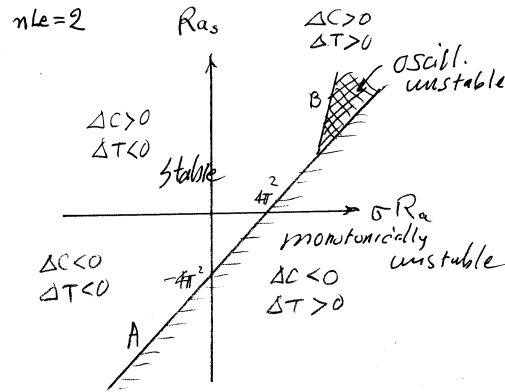 nLe=2
Ra_s
ΔC>0
ΔT>0
oscill.
unstable
B
ΔC>0
ΔT<0
stable
4π²
σRa
monotonically
unstable
ΔC<0
ΔT<0
-4π²
ΔC<0
ΔT>0
A